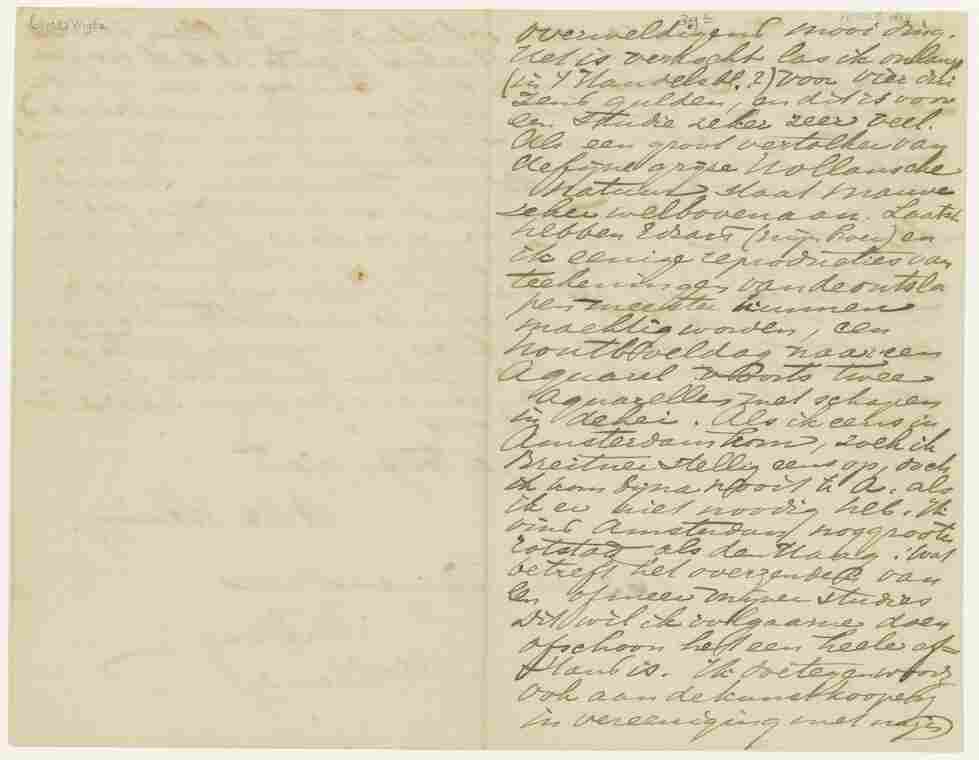 overweldigend mooi ding.
Het is verkocht las ik onlangs
(in 't Handelsbl.?) voor vier dui
zend gulden, en dit is voor
en studie zeker zeer veel.
Als een groot vertolker van
de fijne grijze Hollansche
natuur staat Mauve
zeker wel bovenaan. Laatst
hebben Edzard (mijn broer) en
ik eenige reproducties van
teekeningen van de ontsla
pen meester kunnen
machtig worden, een
houtveldag naar een
Aquarel voorts twee
Aquarellen met schapen
in de hei. Als ik eens in
Amsterdam kom, zoek ik
Breitner stellig eens op, doch
ik kom bijna nooit te A. als
ik er niet noodig heb. Ik
vind Amsterdam nog grooter
rotstad als den Haag. Wat
betreft het overzenden van
en of meer mijner studies
dit wil ik volgaarne doen
ofschoon het een heele af=
stand is. Ik doe tegenwoordig
ook aan de kunstkooperij
in vereeniging met mijn